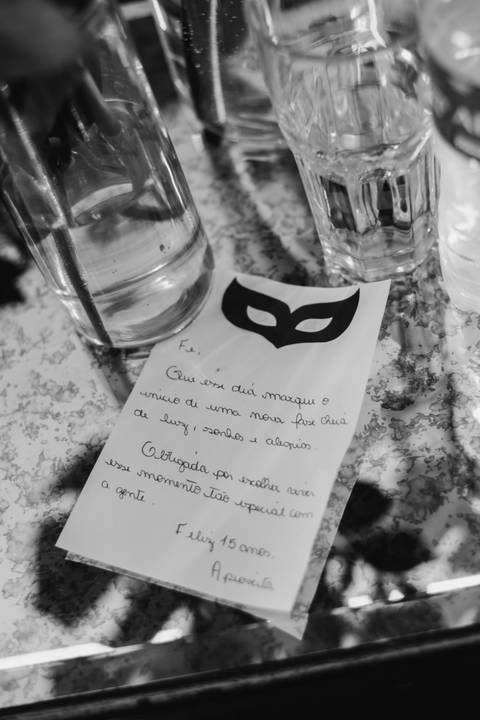 Fe,
Que esse dia marque o
início de uma nova fase cheia
de luz, sonhos e alegrias.
Obrigada por escolher viver
esse momento tão especial com
a gente.
Feliz 15 anos.
Aproveite